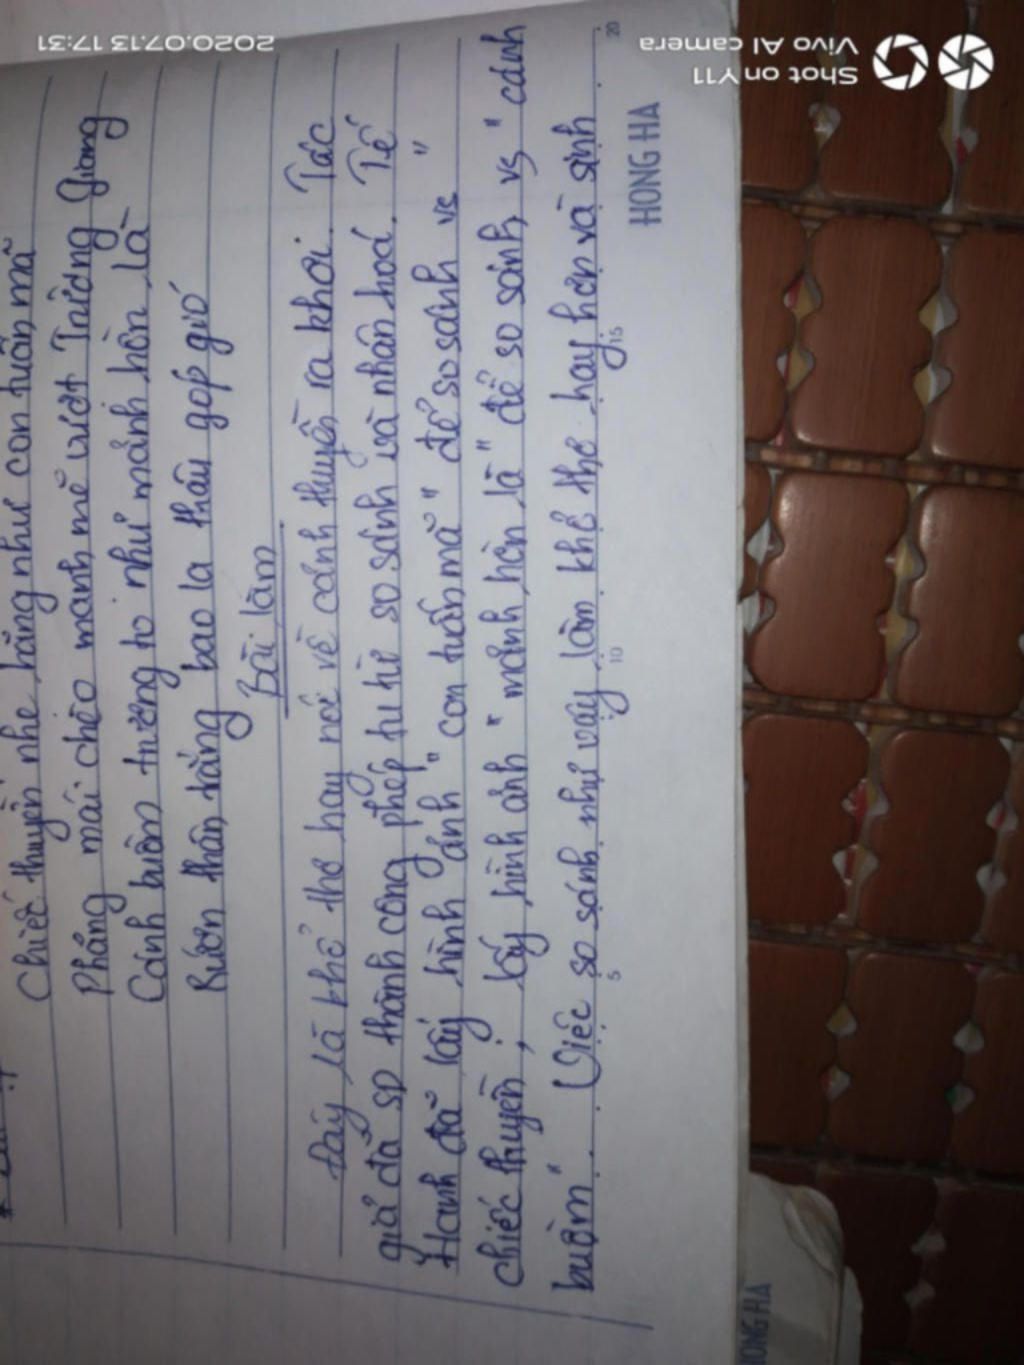 Chiếc thuyền nhẹ hăng như con tuấn mã
Phăng mái chèo mạnh mẽ vượt Trường Giang
Cánh buồm trương to như mảnh hồn là
Rướn thân trắng bao la thâu góp gió
Bài làm
Đây là khổ thơ hay nói về cảnh thuyền ra khơi. Tác
giả đã sp thành công phép tu từ so sánh và nhân hoá. Tế
Hanh đã lấy hình ảnh "con tuấn mã" để so sánh vs "
chiếc thuyền, lấy hình ảnh "mảnh hồn là" để so sánh vs "cánh
buồm". Việc so sánh như vậy làm khổ thơ hay hơn và sinh
5 10 15 20
HONG HA
HONG HA
Shot on Y11
Vivo AI camera
2020.07.13 17:31